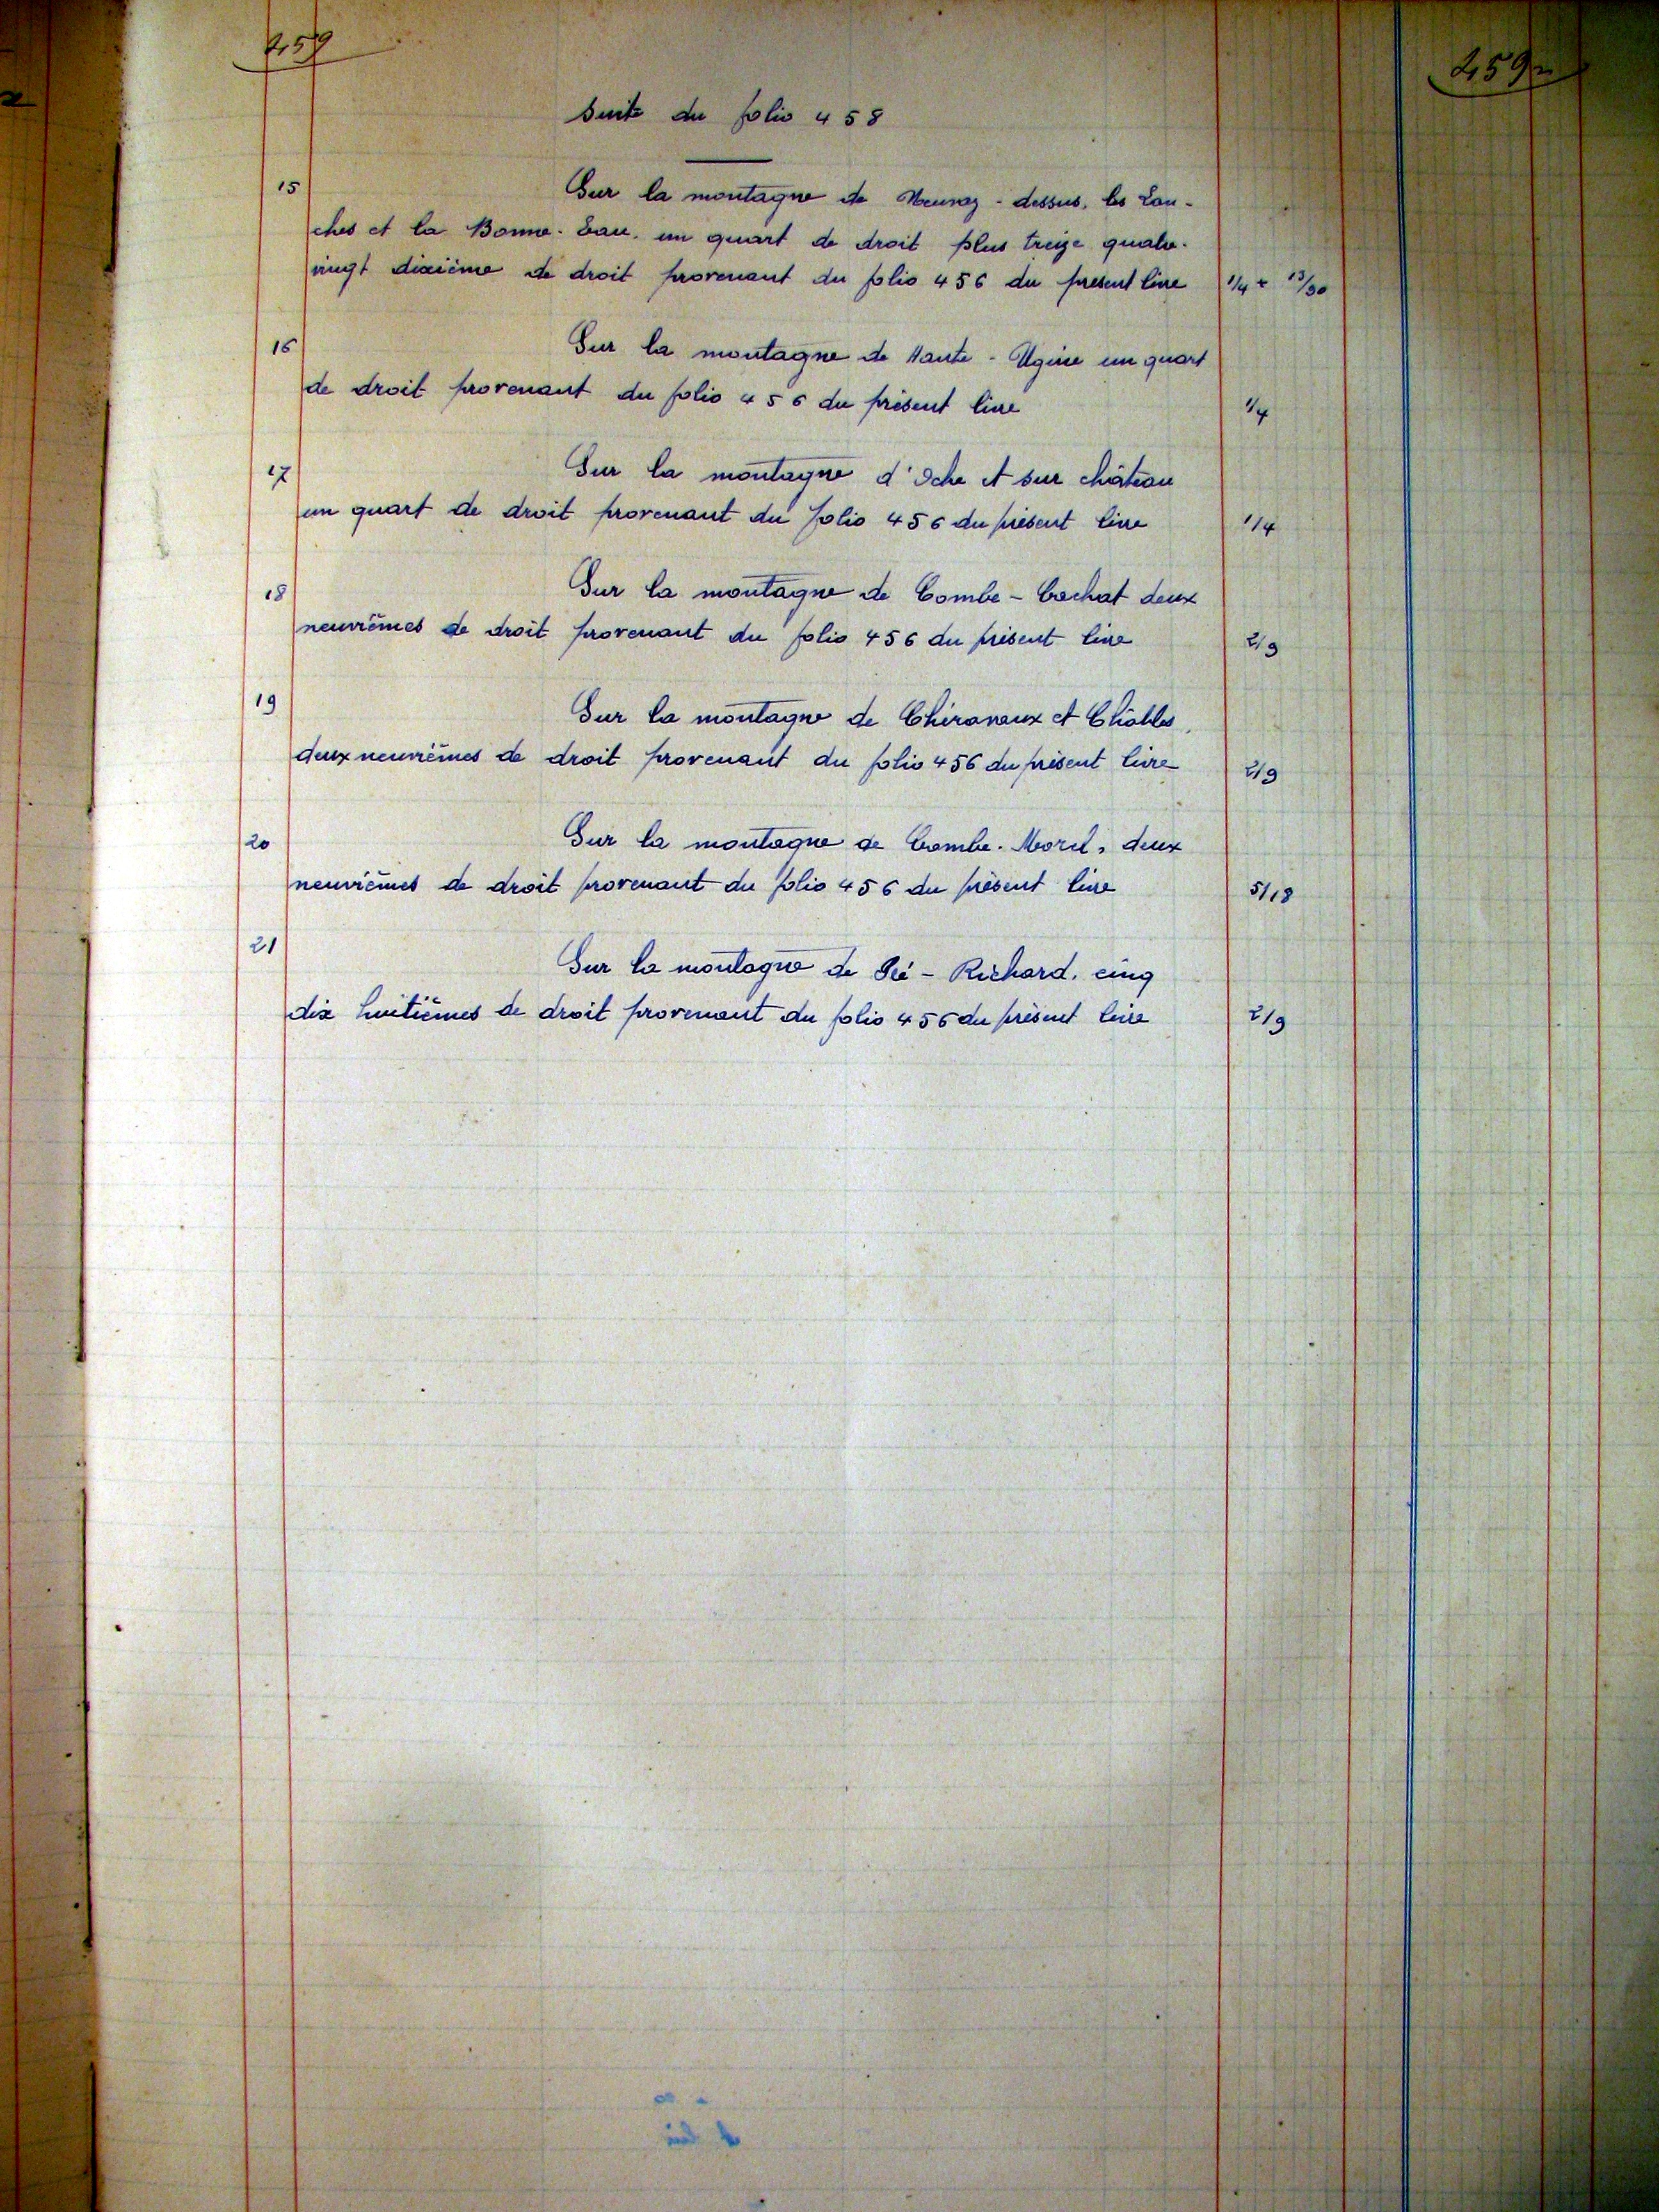 459
459
suite du folio 458
15
Sur la montagne de Neuvaz - dessus, les Lan-
ches et la Bonne-Eau, un quart de droit plus treize quatre-
vingt dixième de droit provenant du folio 456 du present livre 1/4 + 13/90
16
Sur la montagne de Haute-Ugine un quart
de droit provenant du folio 456 du présent livre 1/4
17
Sur la montagne d'Oche et sur château
un quart de droit provenant du folio 456 du présent livre 1/4
18
Sur la montagne de Combe-Cachat deux
neuvièmes de droit provenant du folio 456 du présent livre 2/9
19
Sur la montagne de Chéravaux et Châbles,
deux neuvièmes de droit provenant du folio 456 du présent livre 2/9
20
Sur la montagne de Combe-Morel, deux
neuvièmes de droit provenant du folio 456 du présent livre 5/18
21
Sur la montagne de Pré-Richard, cinq
dix huitièmes de droit provenant du folio 456 du présent livre 2/9